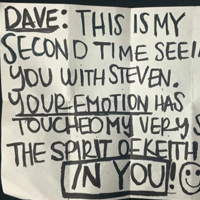 DAVE: THIS IS MY
SECOND TIME SEEI
YOU WITH STEVEN.
YOUR EMOTION HAS
TOUCHED MY VERY S
THE SPIRIT OF KEITH
IN YOU!